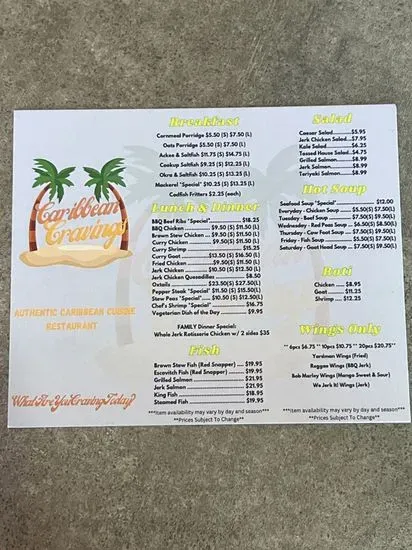 Caribbean
Cravings
AUTHENTIC CARIBBEAN CUISINE
RESTAURANT
What Are You Craving Today?
Breakfast
Cornmeal Porridge $5.50 (S) $7.50 (L)
Oats Porridge $5.50 (S) $7.50 (L)
Ackee & Saltfish $11.75 (S) $14.75 (L)
Cookup Saltfish $9.25 (S) $12.25 (L)
Okra & Saltfish $10.25 (S) $13.25 (L)
Mackerel "Special" $10.25 (S) $13.25 (L)
Codfish Fritters $2.25 (each)
Lunch & Dinner
BBQ Beef Ribs "Special" $18.25
BBQ Chicken ........ $9.50 (S) $11.50 (L)
Brown Stew Chicken ... $9.50 (S) $11.50 (L)
Curry Chicken ........ $9.50(S) $11.50 (L)
Curry Shrimp ........ $15.25
Curry Goat ........ $13.50 (S) $16.50 (L)
Fried Chicken ........ $9.50(S) $11.50 (L)
Jerk Chicken ........ $10.50 (S) $12.50 (L)
Jerk Chicken Quesadillas ........ $8.50
Oxtails ........ $23.50(S) $27.50(L)
Pepper Steak "Special" $11.50 (S) $15.50(L)
Stew Peas "Special" ..... $10.50 (S) $12.50(L)
Chef's Shrimp "Special" ........ $16.75
Vegetarian Dish of the Day ........ $9.95
FAMILY Dinner Special:
Whole Jerk Rotisserie Chicken w/ 2 sides $35
Fish
Brown Stew Fish (Red Snapper) ... $19.95
Escovitch Fish (Red Snapper) .... $19.95
Grilled Salmon ........ $21.95
Jerk Salmon ........ $21.95
King Fish ........ $18.95
Steamed Fish ........ $19.95
***Item availability may vary by day and season***
**Prices Subject To Change**
Salad
Caesar Salad........$5.95
Jerk Chicken Salad....$7.95
Kale Salad........$6.25
Tossed House Salad...$4.75
Grilled Salmon........$8.99
Jerk Salmon........$8.99
Teriyaki Salmon........$8.99
Hot Soup
Seafood Soup "Special" ........ $12.00
Everyday - Chicken Soup ..... $5.50(S) $7.50(L)
Tuesday - Beef Soup ........ $7.50(S) $9.50(L)
Wednesday - Red Peas Soup ... $6.50(S) $8.50(L)
Thursday - Cow Foot Soup ..... $7.50(S) $9.50(L)
Friday - Fish Soup ........ $5.50(S) $7.50(L)
Saturday - Goat Head Soup .... $7.50(S) $9.50(L)
Roti
Chicken ..... $8.95
Goat ........ $11.25
Shrimp ..... $12.25
Wings Only
** 6pcs $6.75 ** 10pcs $10.75 ** 20pcs $20.75**
Yardman Wings (Fried)
Reggae Wings (BBQ Jerk)
Bob Marley Wings (Mango Sweet & Sour)
We Jerk It! Wings (Jerk)
***Item availability may vary by day and season***
**Prices Subject To Change**